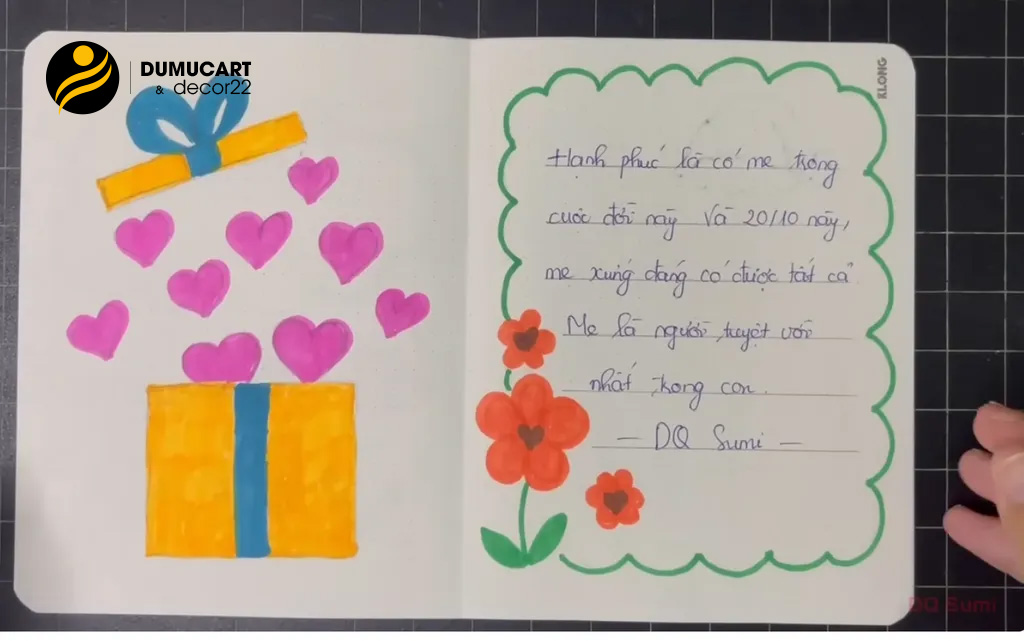 DUMUCART
& decor22
KLONG
Hạnh phúc là có mẹ trong
cuộc đời này và 20/10 này,
mẹ xứng đáng có được tất cả
Mẹ là người tuyệt vời
nhất trong con.
— DQ Sumi —
DQ Sumi